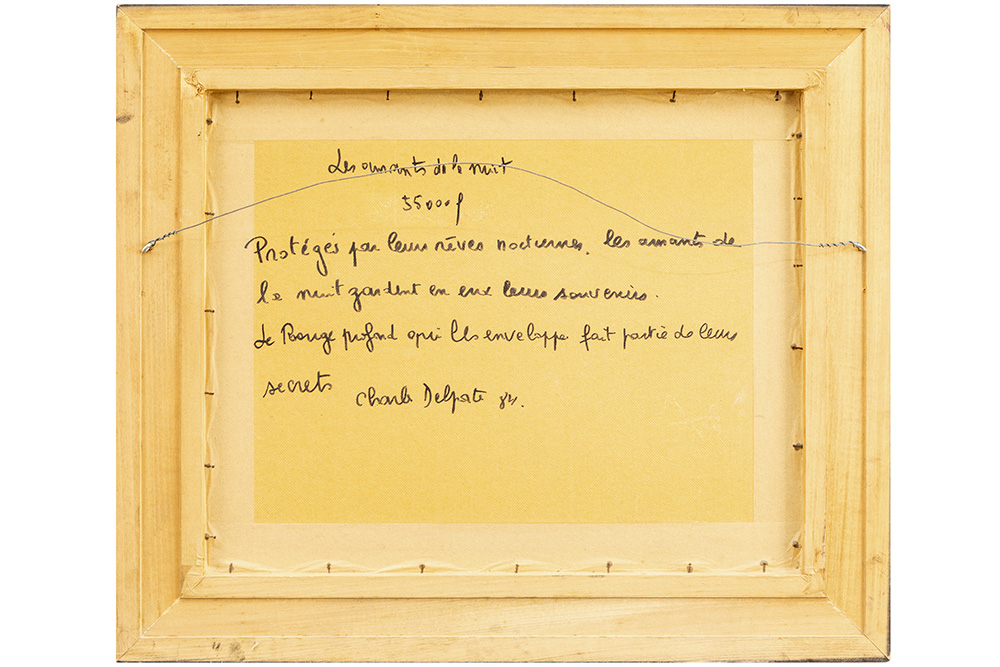 Les amants de la nuit
55000 f
Protégés par leurs rêves nocturnes, les amants de
la nuit gardent en eux leurs souvenirs.
Le Rouge profond qui les enveloppe fait partie de leurs
secrets
Charles Delporte 84.